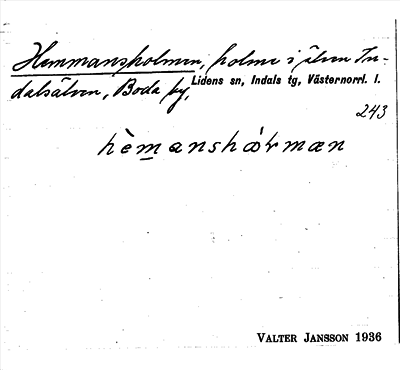 Hemmansholmen, holme i älven In-
dalsälven, Boda by, Lidens sn, Indals tg, Västernorrl. l.
243
hèmanshɷ́rmæn
VALTER JANSSON 1936